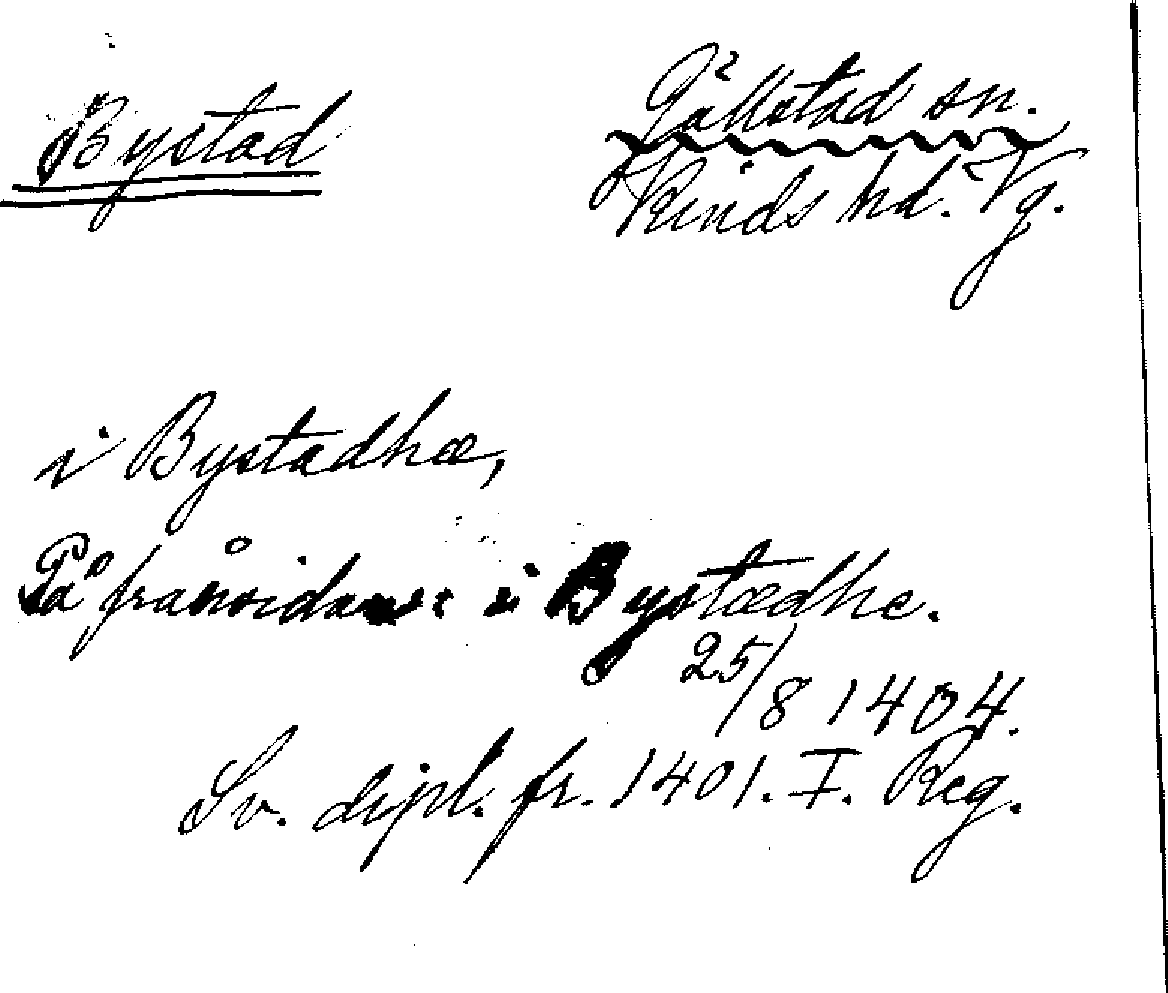 Bystad
Gällstad sn.
Kinds hd. Vg.
i Bystadhæ,
På frånsidan: i Bystædhe.
25/8 1404.
Sv. dipl. fr. 1401. I. Reg.